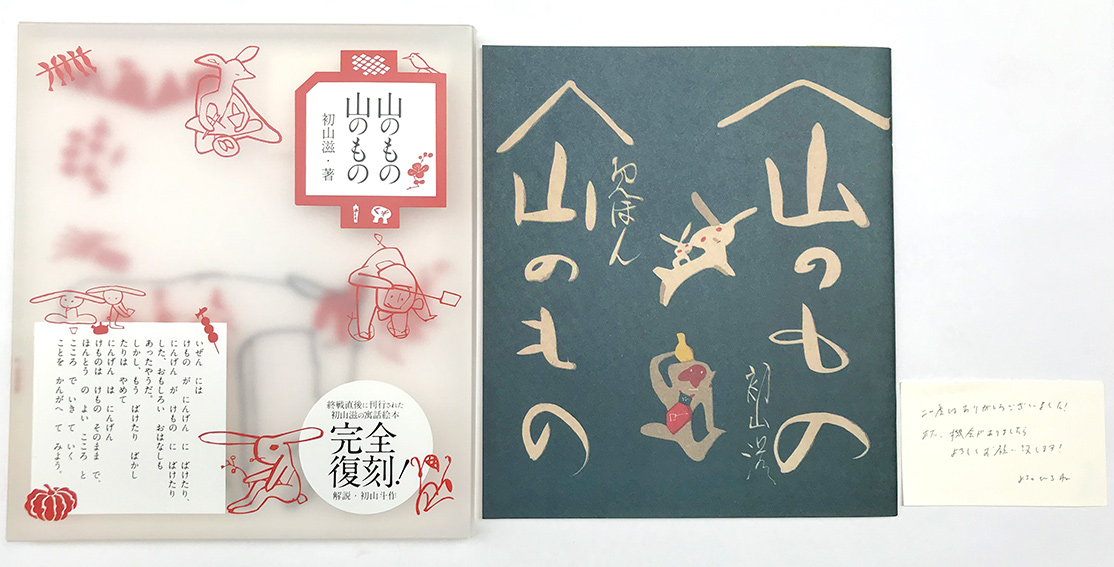 山のもの
山のもの
初山滋・著
いぜん には
けもの が にんげん に ばけたり、
にんげん が けもの に ばけたり
した、おもしろい おはなしも
あったやうだ。
しかし、もう ばけたり ばかし
たりは やめて
にんげん は にんげん
けものは けもの、そのまま で、
ほんとう の よい こころ と
こころ で いき て いく
ことを かんがへ て みよう。
終戦直後に刊行された
初山滋の寓話絵本
完全
復刻!
解説・初山斗作
山のもの
山のもの
えほん
初山滋
この度はありがとうございました!
また、機会がありましたら
よろしくお願い致します!